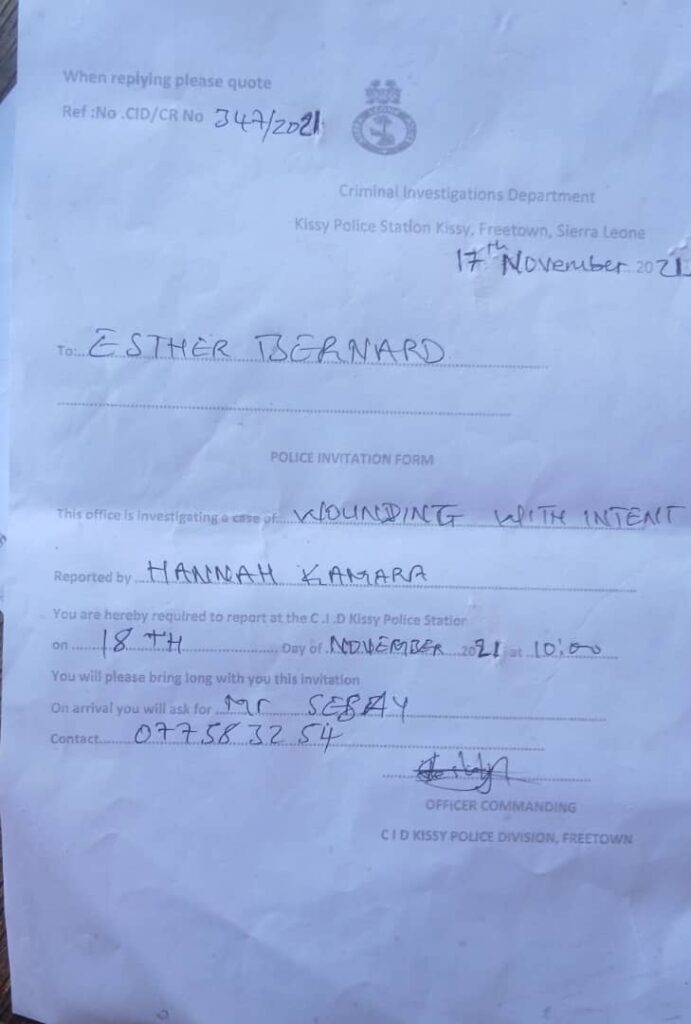 When replying please quote
Ref :No .CID/CR No 347/2021
Criminal Investigations Department
Kissy Police Station Kissy, Freetown, Sierra Leone
17th November 2021
To:..ESTHER BERNARD
POLICE INVITATION FORM
This office is investigating a case of....WOUNDING WITH INTENT
Reported by ...HANNAH KAMARA
You are hereby required to report at the C .I .D Kissy Police Station
on ......18TH.......... Day of .NOVEMBER 2021 at 10:00
You will please bring long with you this invitation
On arrival you will ask for ..Mr SESAY
Contact......077583254
OFFICER COMMANDING
C I D KISSY POLICE DIVISION, FREETOWN